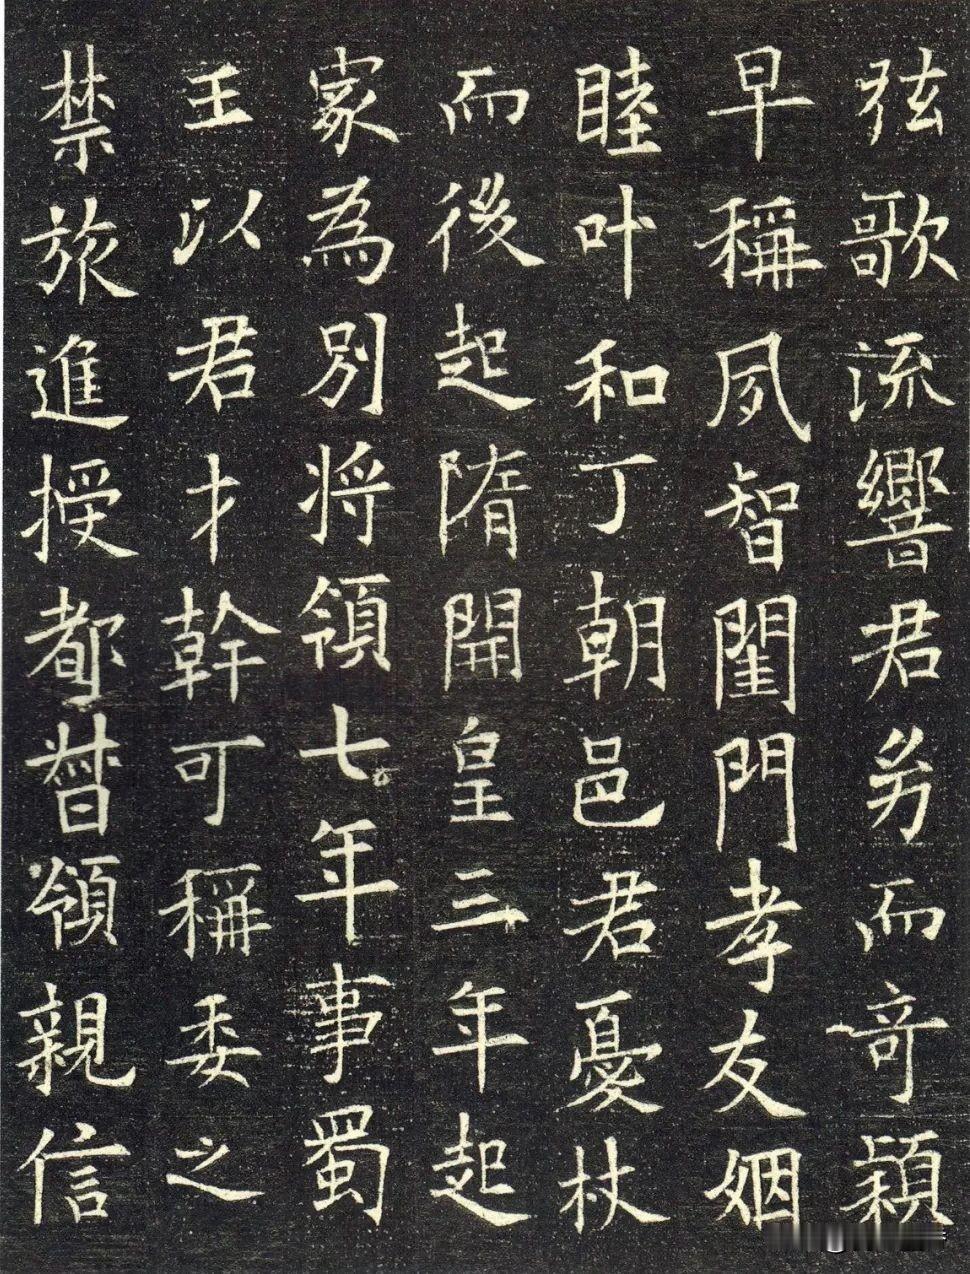 弦歌流響君㓜而竒穎
早稱夙智閨門孝友姻
睦叶和丁朝邑君憂杖
而後起隋開皇三年起
家為別将領七年事蜀
王以君才幹可稱委之
禁旅進授都督領親信